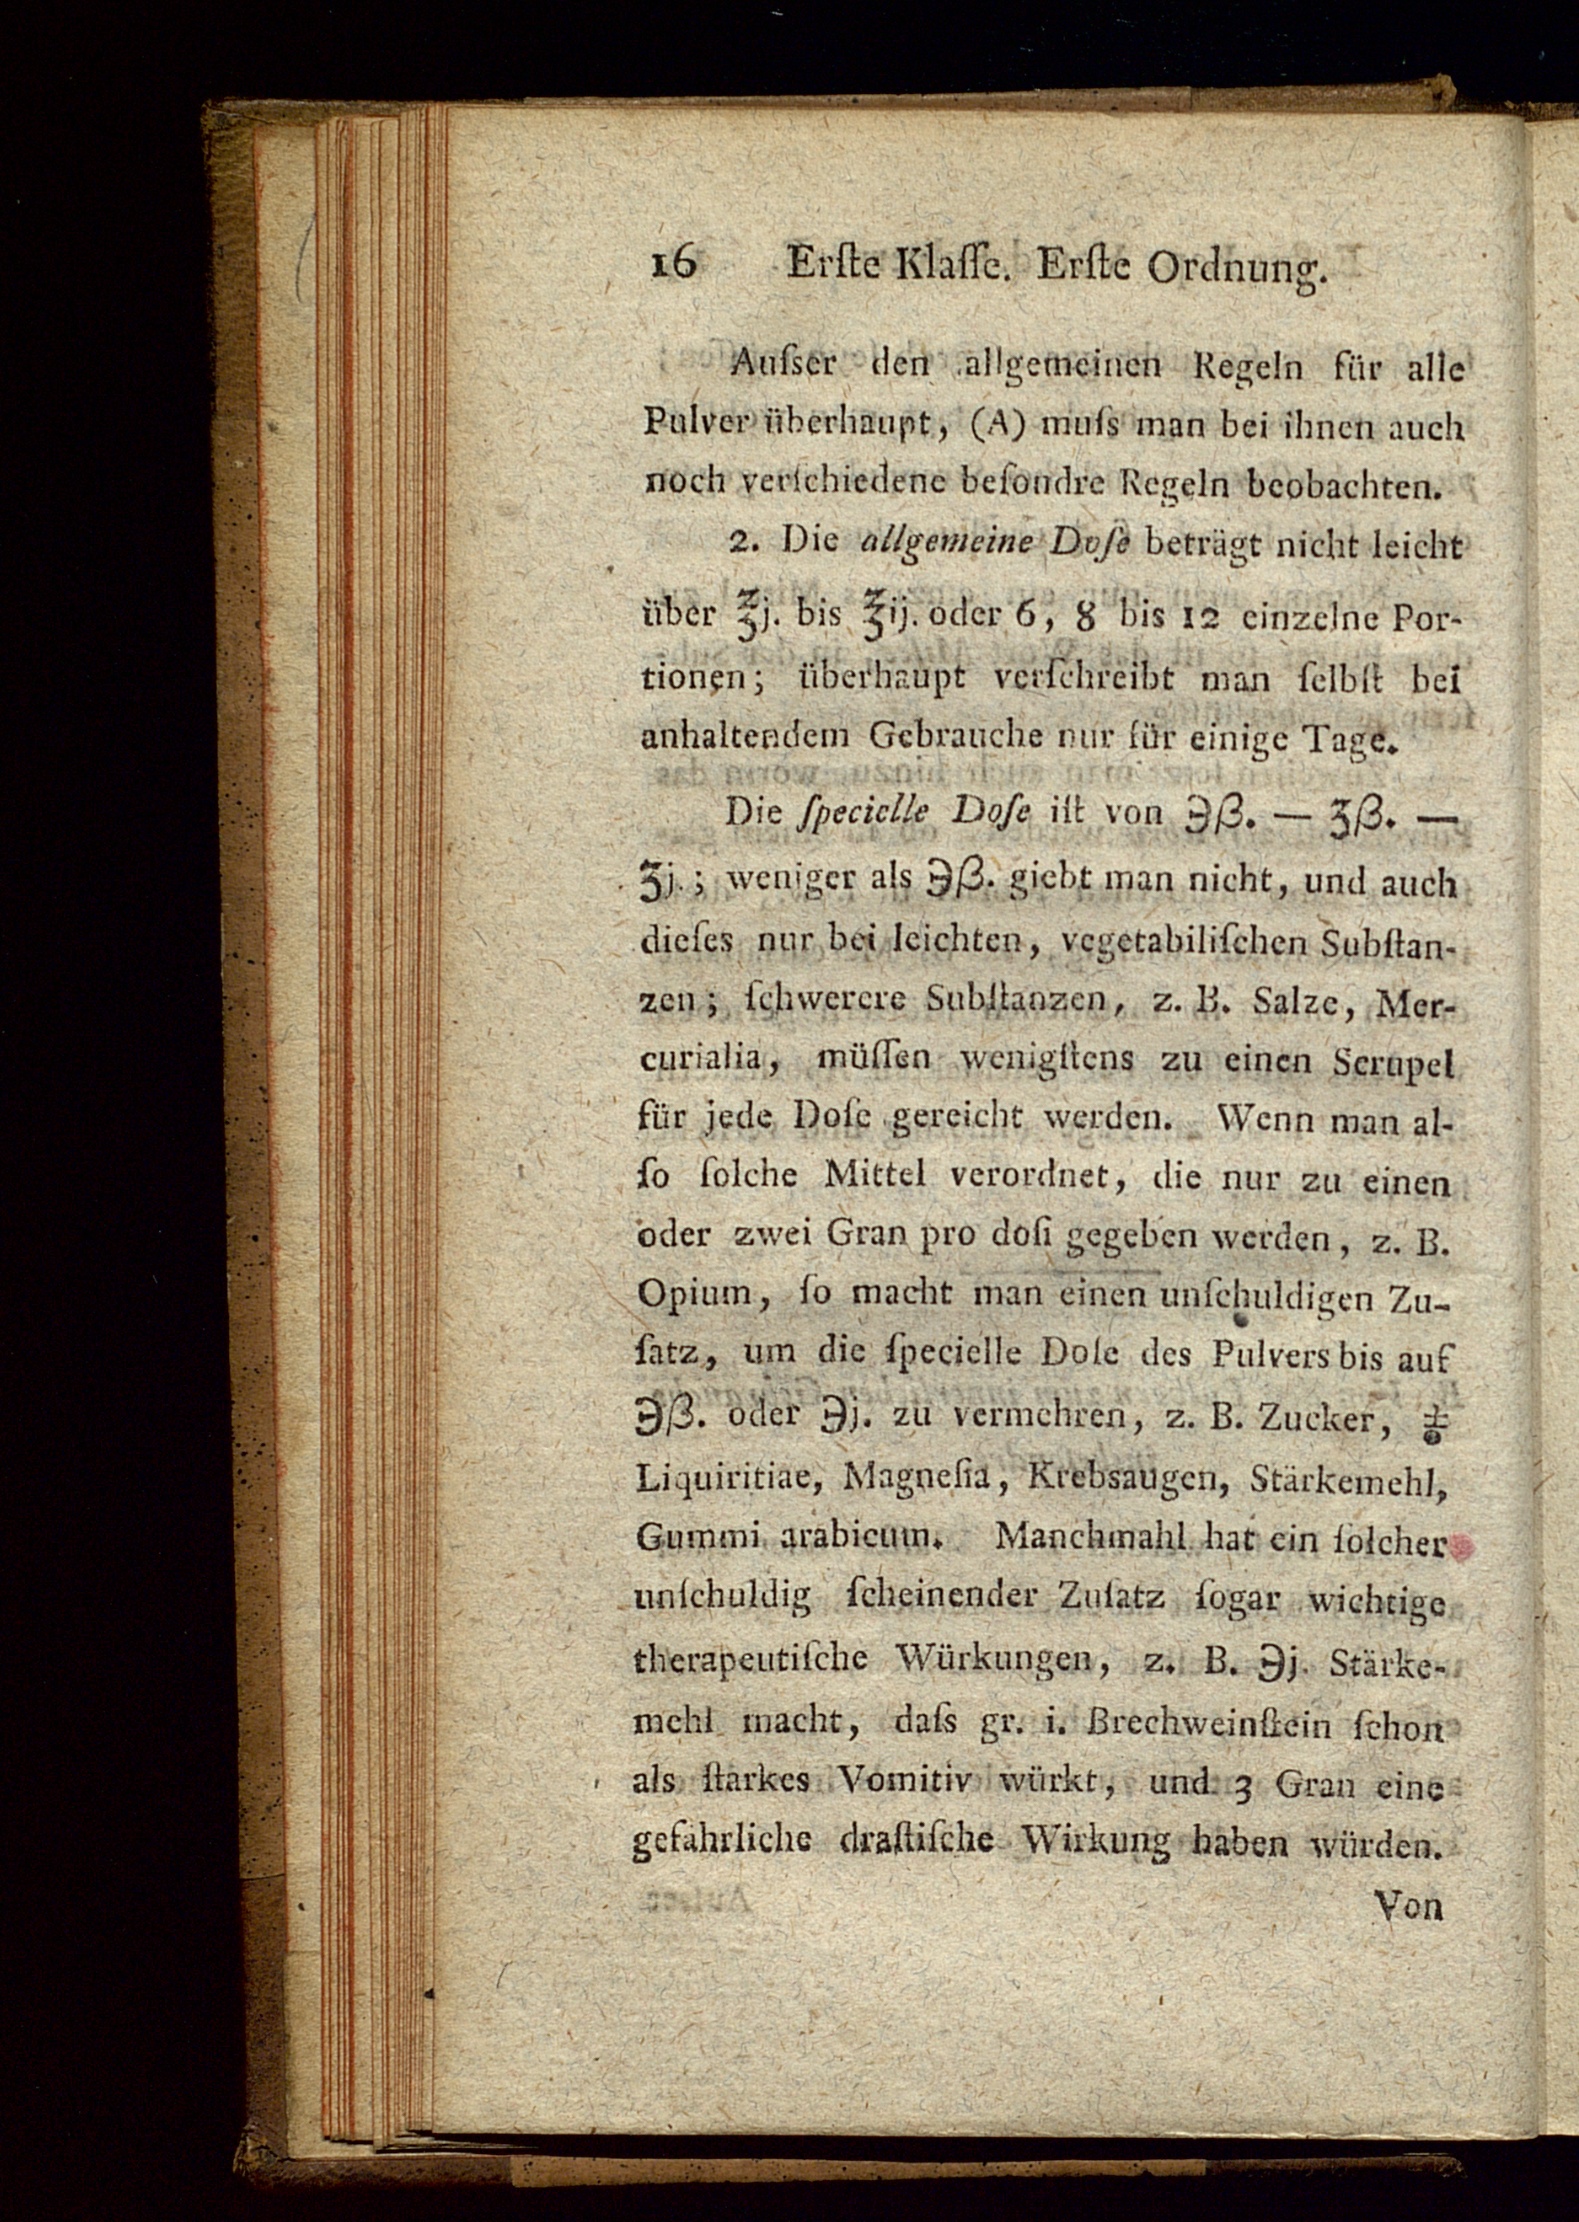 16 Erſte Klaſſe. Erſte Ordnung.
Auſser den allgemeinen Regeln für alle
Pulver überhaupt, (A) muſs man bei ihnen auch
noch verſchiedene beſondre Regeln beobachten.
2. Die allgemeine Doſe beträgt nicht leicht
über ℥j. bis ℥ij. oder 6, 8 bis 12 einzelne Por-
tionen; überhaupt verſchreibt man ſelbſt bei
anhaltendem Gebrauche nur für einige Tage.
Die ſpecielle Doſe iſt von ℈β. — ʒβ. —
ʒj.; weniger als ℈β. giebt man nicht, und auch
dieſes nur bei leichten, vegetabiliſchen Subſtan-
zen; ſchwerere Subſtanzen, z. B. Salze, Mer-
curialia, müſſen wenigſtens zu einen Scrupel
für jede Doſe gereicht werden. Wenn man al-
ſo ſolche Mittel verordnet, die nur zu einen
oder zwei Gran pro doſi gegeben werden, z. B.
Opium, ſo macht man einen unſchuldigen Zu-
ſatz, um die ſpecielle Doſe des Pulvers bis auf
℈β. oder ℈j. zu vermehren, z. B. Zucker,
Liquiritiae, Magneſia, Krebsaugen, Stärkemehl,
Gummi arabicum. Manchmahl hat ein ſolcher
unſchuldig ſcheinender Zuſatz ſogar wichtige
therapeutiſche Würkungen, z. B. ℈j. Stärke-
mehl macht, daſs gr. i. Brechweinſtein ſchon
als ſtarkes Vomitiv würkt, und 3 Gran eine
gefährliche draſtiſche Wirkung haben würden.
Von